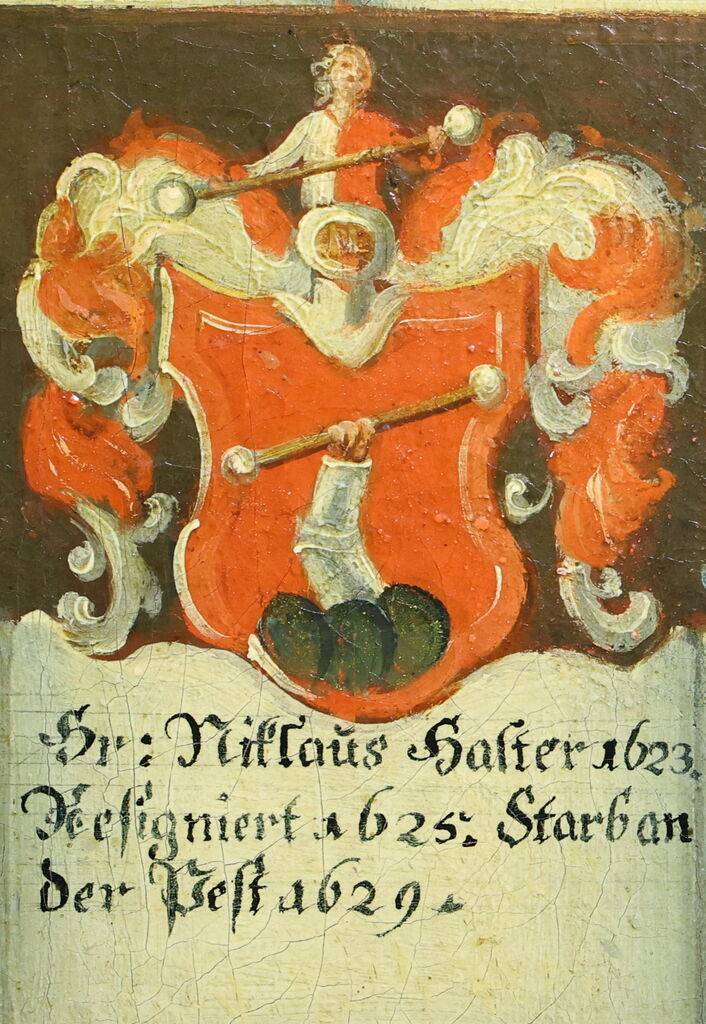 Hr: Niklaüs Halter 1623.
Resigniert 1625. Starb an
der Pest 1629.